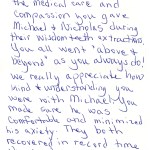 the medical care and
compassion you gave
Michael & Nicholas during
their wisdom teeth extractions
You all went "above &
beyond" as you always do!
We really appreciate how
kind & understanding you
were with Michael. You
made sure he was
comfortable and minimized
his anxiety. They both
recovered in record time